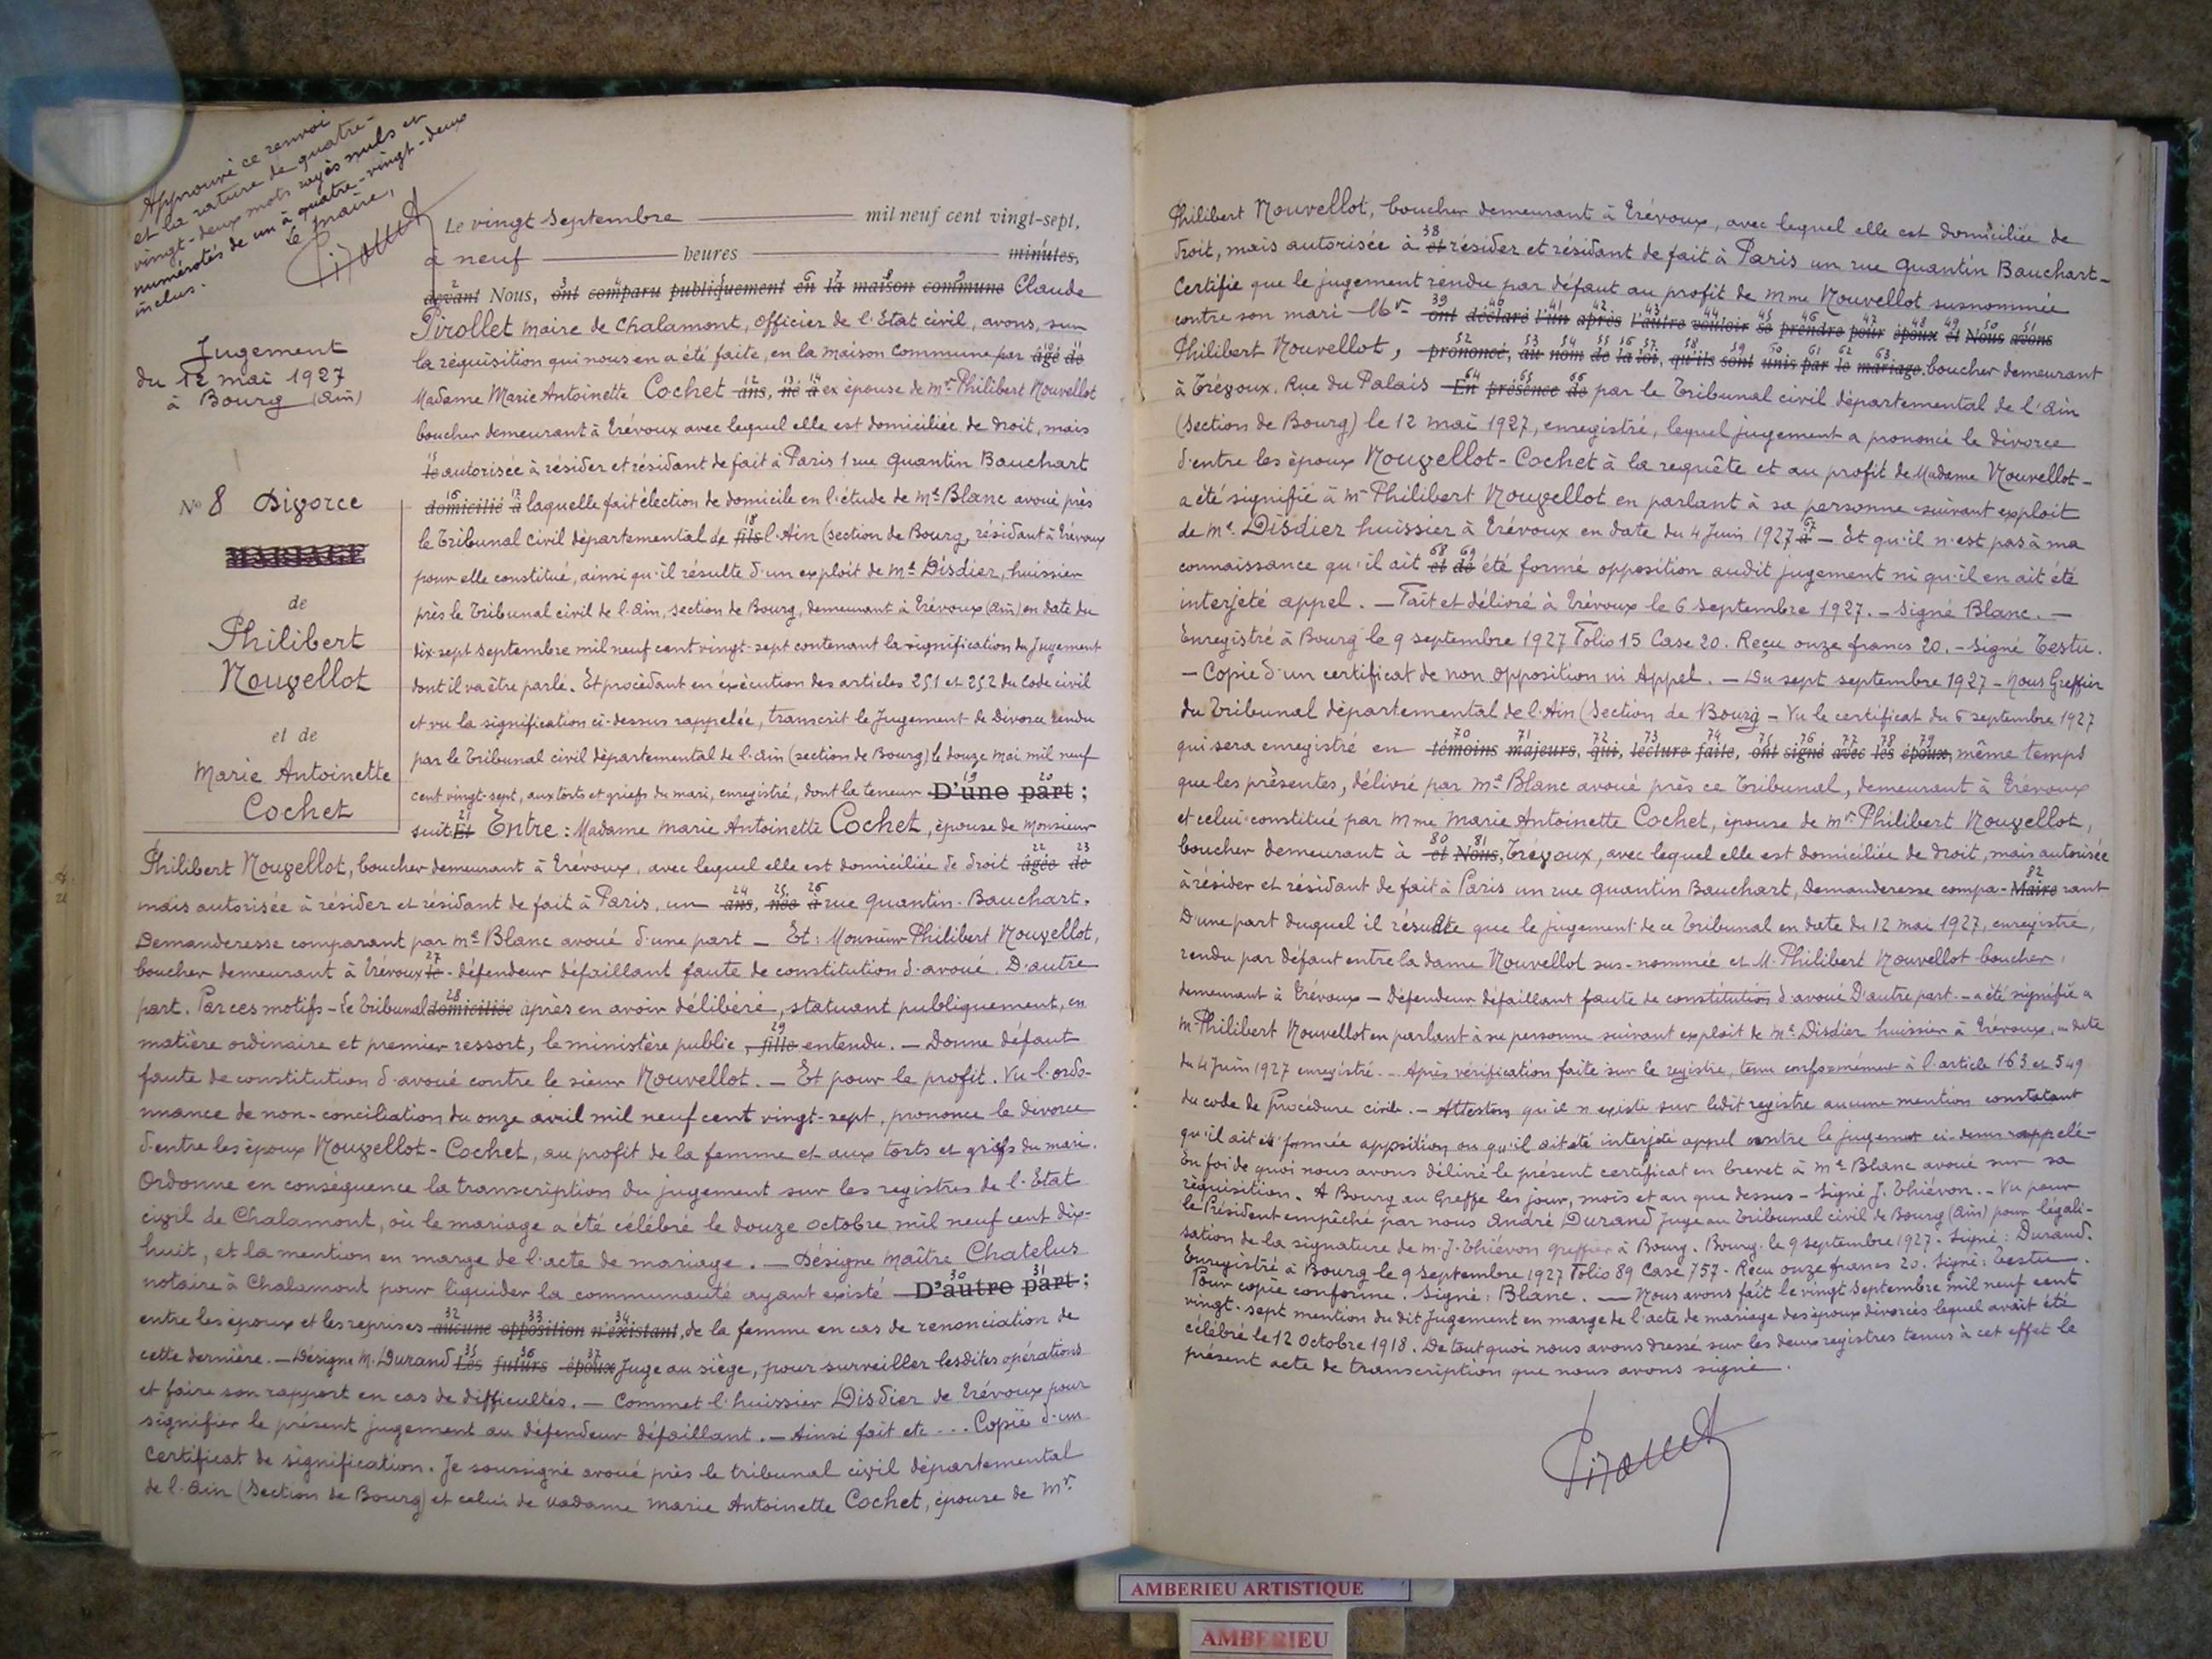 Approuvé ce renvoi
et la rature de quatre-
vingt-deux mots rayés nuls et
numérotés de un à quatre-vingt-deux
inclus. Le maire,
Jugement
du 12 mai 1927
à Bourg (Ain)
No 8 Divorce
MARIAGE
de
Philibert
Nouvellot
et de
Marie Antoinette
Cochet
Le vingt septembre mil neuf cent vingt-sept,
à neuf heures minutes,
devant Nous, ont comparu publiquement en la maison commune Claude
Pirollet maire de Chalamont, officier de l'Etat civil, avons, sur
la réquisition qui nous en a été faite, en la maison commune par âgé de
Madame Marie Antoinette Cochet ans, né à ex épouse de Mr Philibert Nouvellot
boucher demeurant à Trévoux avec lequel elle est domiciliée de droit, mais
le autorisée à résider et résidant de fait à Paris 1 rue Quantin Bauchart
domicilié à laquelle fait élection de domicile en l'étude de Me Blanc avoué près
le Tribunal civil départemental de fils l'Ain (section de Bourg, résidant à Trévoux
pour elle constitué, ainsi qu'il résulte d'un exploit de Me Disdier, huissier
près le Tribunal civil de l'Ain, section de Bourg, demeurant à Trévoux (Ain) en date du
dix-sept septembre mil neuf cent vingt-sept contenant la signification du Jugement
dont il va être parlé. Et procédant en éxécution des articles 251 et 252 du Code civil
et vu la signification ci-dessus rappelée, transcrit le Jugement de Divorce rendu
par le Tribunal civil départemental de l'Ain (section de Bourg) le douze mai mil neuf
cent vingt-sept, aux torts et griefs du mari, enregistré, dont la teneur D'une part ;
suit Et Entre : Madame Marie Antoinette Cochet, épouse de Monsieur
Philibert Nouvellot, boucher demeurant à Trévoux, avec lequel elle est domiciliée de droit âgée de
mais autorisée à résider et résidant de fait à Paris, un ans, née à rue Quantin-Bauchart.
Demanderesse comparant par Me Blanc avoué d'une part — Et : Monsieur Philibert Nouvellot,
boucher demeurant à Trévoux le - défendeur défaillant faute de constitution d'avoué. D'autre
part. Par ces motifs - Le Tribunal domiciliée après en avoir délibéré, statuant publiquement, en
matière ordinaire et premier ressort, le ministère public, fille entendu. — Donne défaut
faute de constitution d'avoué contre le sieur Nouvellot. — Et pour le profit. Vu l'ordo-
nnance de non-conciliation du onze avril mil neuf cent vingt-sept, prononce le divorce
d'entre les époux Nouvellot-Cochet, au profit de la femme et aux torts et griefs du mari.
Ordonne en conséquence la transcription du jugement sur les registres de l'Etat
civil de Chalamont, où le mariage a été célébré le douze octobre mil neuf cent dix-
huit, et la mention en marge de l'acte de mariage. — Désigne Maître Chatelus
notaire à Chalamont pour liquider la communauté ayant existé D'autre part ;
entre les époux et les reprises aucune opposition n'existant, de la femme en cas de renonciation de
cette dernière. — Désigne M. Durand Les futurs époux Juge au siège, pour surveiller lesdites opérations
et faire son rapport en cas de difficultés. — Commet l'huissier Disdier de Trévoux pour
signifier le présent jugement au défendeur défaillant. — Ainsi fait etc ... Copie d'un
Certificat de signification. Je soussigné avoué près le tribunal civil départemental
de l'Ain (Section de Bourg) et celui de Madame Marie Antoinette Cochet, épouse de Mr
Philibert Nouvellot, boucher demeurant à Trévoux, avec lequel elle est domiciliée de
droit, mais autorisée à et résider et résidant de fait à Paris un rue Quantin Bauchart -
Certifie que le jugement rendu par défaut au profit de Mme Nouvellot susnommée
contre son mari Mr - ont déclaré l'un après l'autre vouloir se prendre pour époux et Nous avons
Philibert Nouvellot, prononcé, au nom de la loi, qu'ils sont unis par le mariage. boucher demeurant
à Trévoux. Rue du Palais En présence de par le Tribunal civil départemental de l'Ain
(Section de Bourg) le 12 mai 1927, enregistré, lequel jugement a prononcé le divorce
d'entre les époux Nouvellot-Cochet à la requête et au profit de Madame Nouvellot -
a été signifié à Mr Philibert Nouvellot en parlant à sa personne suivant exploit
de Me Disdier huissier à Trévoux en date du 4 Juin 1927 à — Et qu'il n'est pas à ma
connaissance qu'il ait et de été formé opposition audit jugement ni qu'il en ait été
interjeté appel. — Fait et délivré à Trévoux le 6 Septembre 1927. — Signé Blanc. —
Enregistré à Bourg le 9 septembre 1927 Folio 15 Case 20. Reçu onze francs 20. - Signé Testu.
— Copie d'un certificat de non opposition ni Appel. — Du sept septembre 1927 - Nous Greffier
du Tribunal départemental de l'Ain (Section de Bourg - Vu le certificat du 6 septembre 1927
qui sera enregistré en témoins majeurs, qui, lecture faite, ont signé avec les époux, même temps
que les présentes, délivré par Me Blanc avoué près ce Tribunal, demeurant à Trévoux
et celui constitué par Mme Marie Antoinette Cochet, épouse de Mr Philibert Nouvellot,
boucher demeurant à et Nous, Trévoux, avec lequel elle est domiciliée de droit, mais autorisée
à résider et résidant de fait à Paris un rue Quantin Bauchart, Demanderesse compa- Maire rant
D'une part duquel il résulte que le jugement de ce Tribunal en date du 12 mai 1927, enregistré,
rendu par défaut entre la dame Nouvellot sus-nommée et M. Philibert Nouvellot boucher,
demeurant à Trévoux — Défendeur défaillant faute de constitution d'avoué D'autre part. - a été signifié a
Mr Philibert Nouvellot en parlant à sa personne suivant exploit de Me Disdier huissier à Trévoux, en date
du 4 Juin 1927 enregistré. - Après vérification faite sur le registre, tenu conformément à l'article 163 et 549
du code de Procédure civile. — Attestons qu'il n'existe sur ledit registre aucune mention constatant
qu'il ait été formée opposition ou qu'il ait été interjeté appel contre le jugement ci-dessus rappelé -
En foi de quoi nous avons délivré le présent certificat en brevet à Me Blanc avoué sur sa
réquisition. A Bourg au Greffe les jour, mois et an que dessus - Signé J. Thiévon. - Vu pour
le Président empêché par nous André Durand Juge au Tribunal civil de Bourg (Ain) pour légali-
sation de la signature de M. J. Thiévon greffier à Bourg. Bourg. le 9 septembre 1927 - Signé : Durand.
Enregistré à Bourg le 9 Septembre 1927 Folio 89 Case 757 - Reçu onze francs 20. Signé : Testu.
Pour copie conforme. Signé : Blanc. — Nous avons fait le vingt Septembre mil neuf cent
vingt-sept mention du dit Jugement en marge de l'acte de mariage des époux divorcés lequel avait été
célébré le 12 Octobre 1918. De tout quoi nous avons dressé sur les deux registres tenus à cet effet le
présent acte de transcription que nous avons signé.
AMBERIEU ARTISTIQUE
AMBERIEU